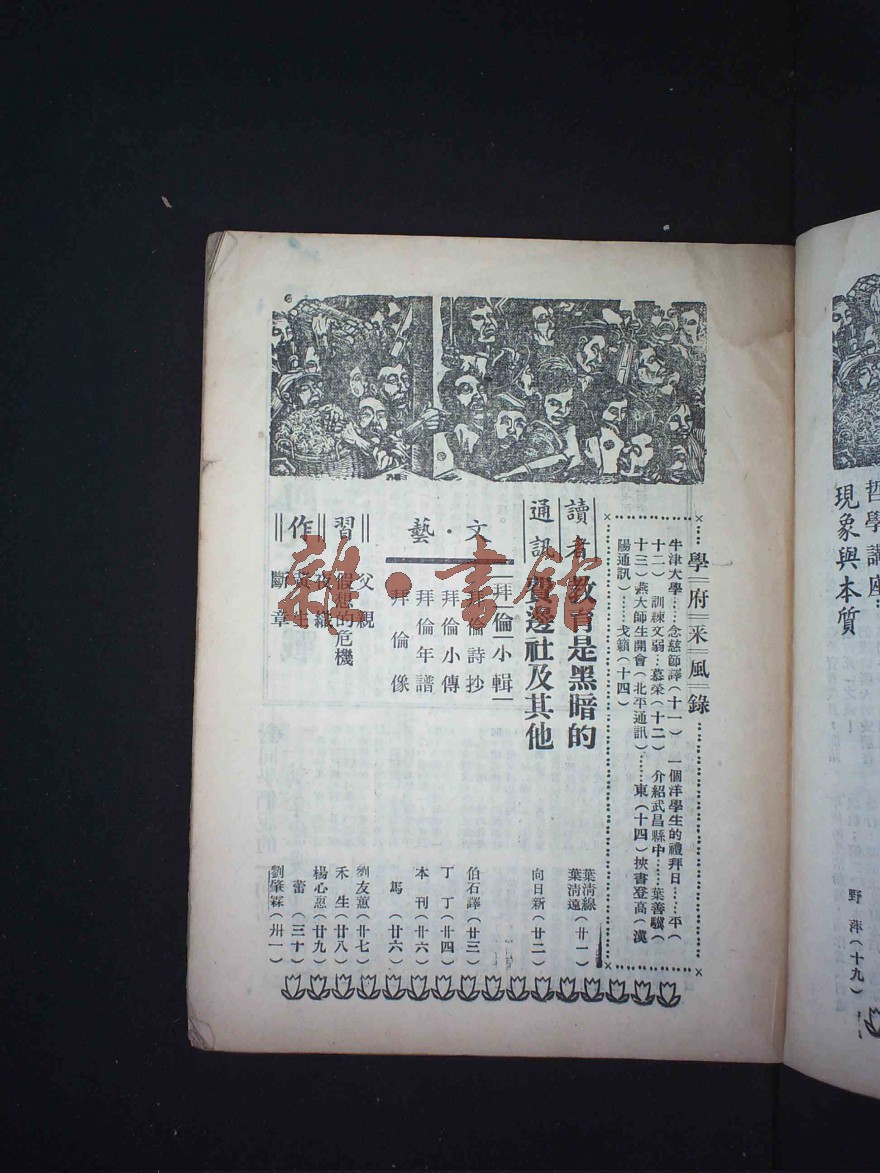 哲學講座:
現象與本質
野 萍(十九)
學府采風錄
牛津大學……念慈節譯(十一) 一個洋學生的禮拜日……平(
十二) 訓練文弱…慕榮(十二) 介紹武昌縣中……葉善驥(
十三)燕大師生開會(北平通訊)……東(十四)挾書登高(漢
陽通訊)……戈籟(十四)
讀者
通訊
教育是黑暗的
葉清線
葉清遠(廿一)
賀邊社及其他
向日新(廿二)
文·藝
拜倫小輯
拜倫詩抄
伯石譯(廿三)
拜倫小傳
丁 丁(廿四)
拜倫年譜
本 刊(廿六)
拜倫像
馬(廿六)
習作
父親
劉友蕙(廿七)
假想的危機
禾 生(廿八)
夜織
楊心惠(廿九)
寅生
蕾(三十)
斷章
劉肇霖(卅一)
雜·書館